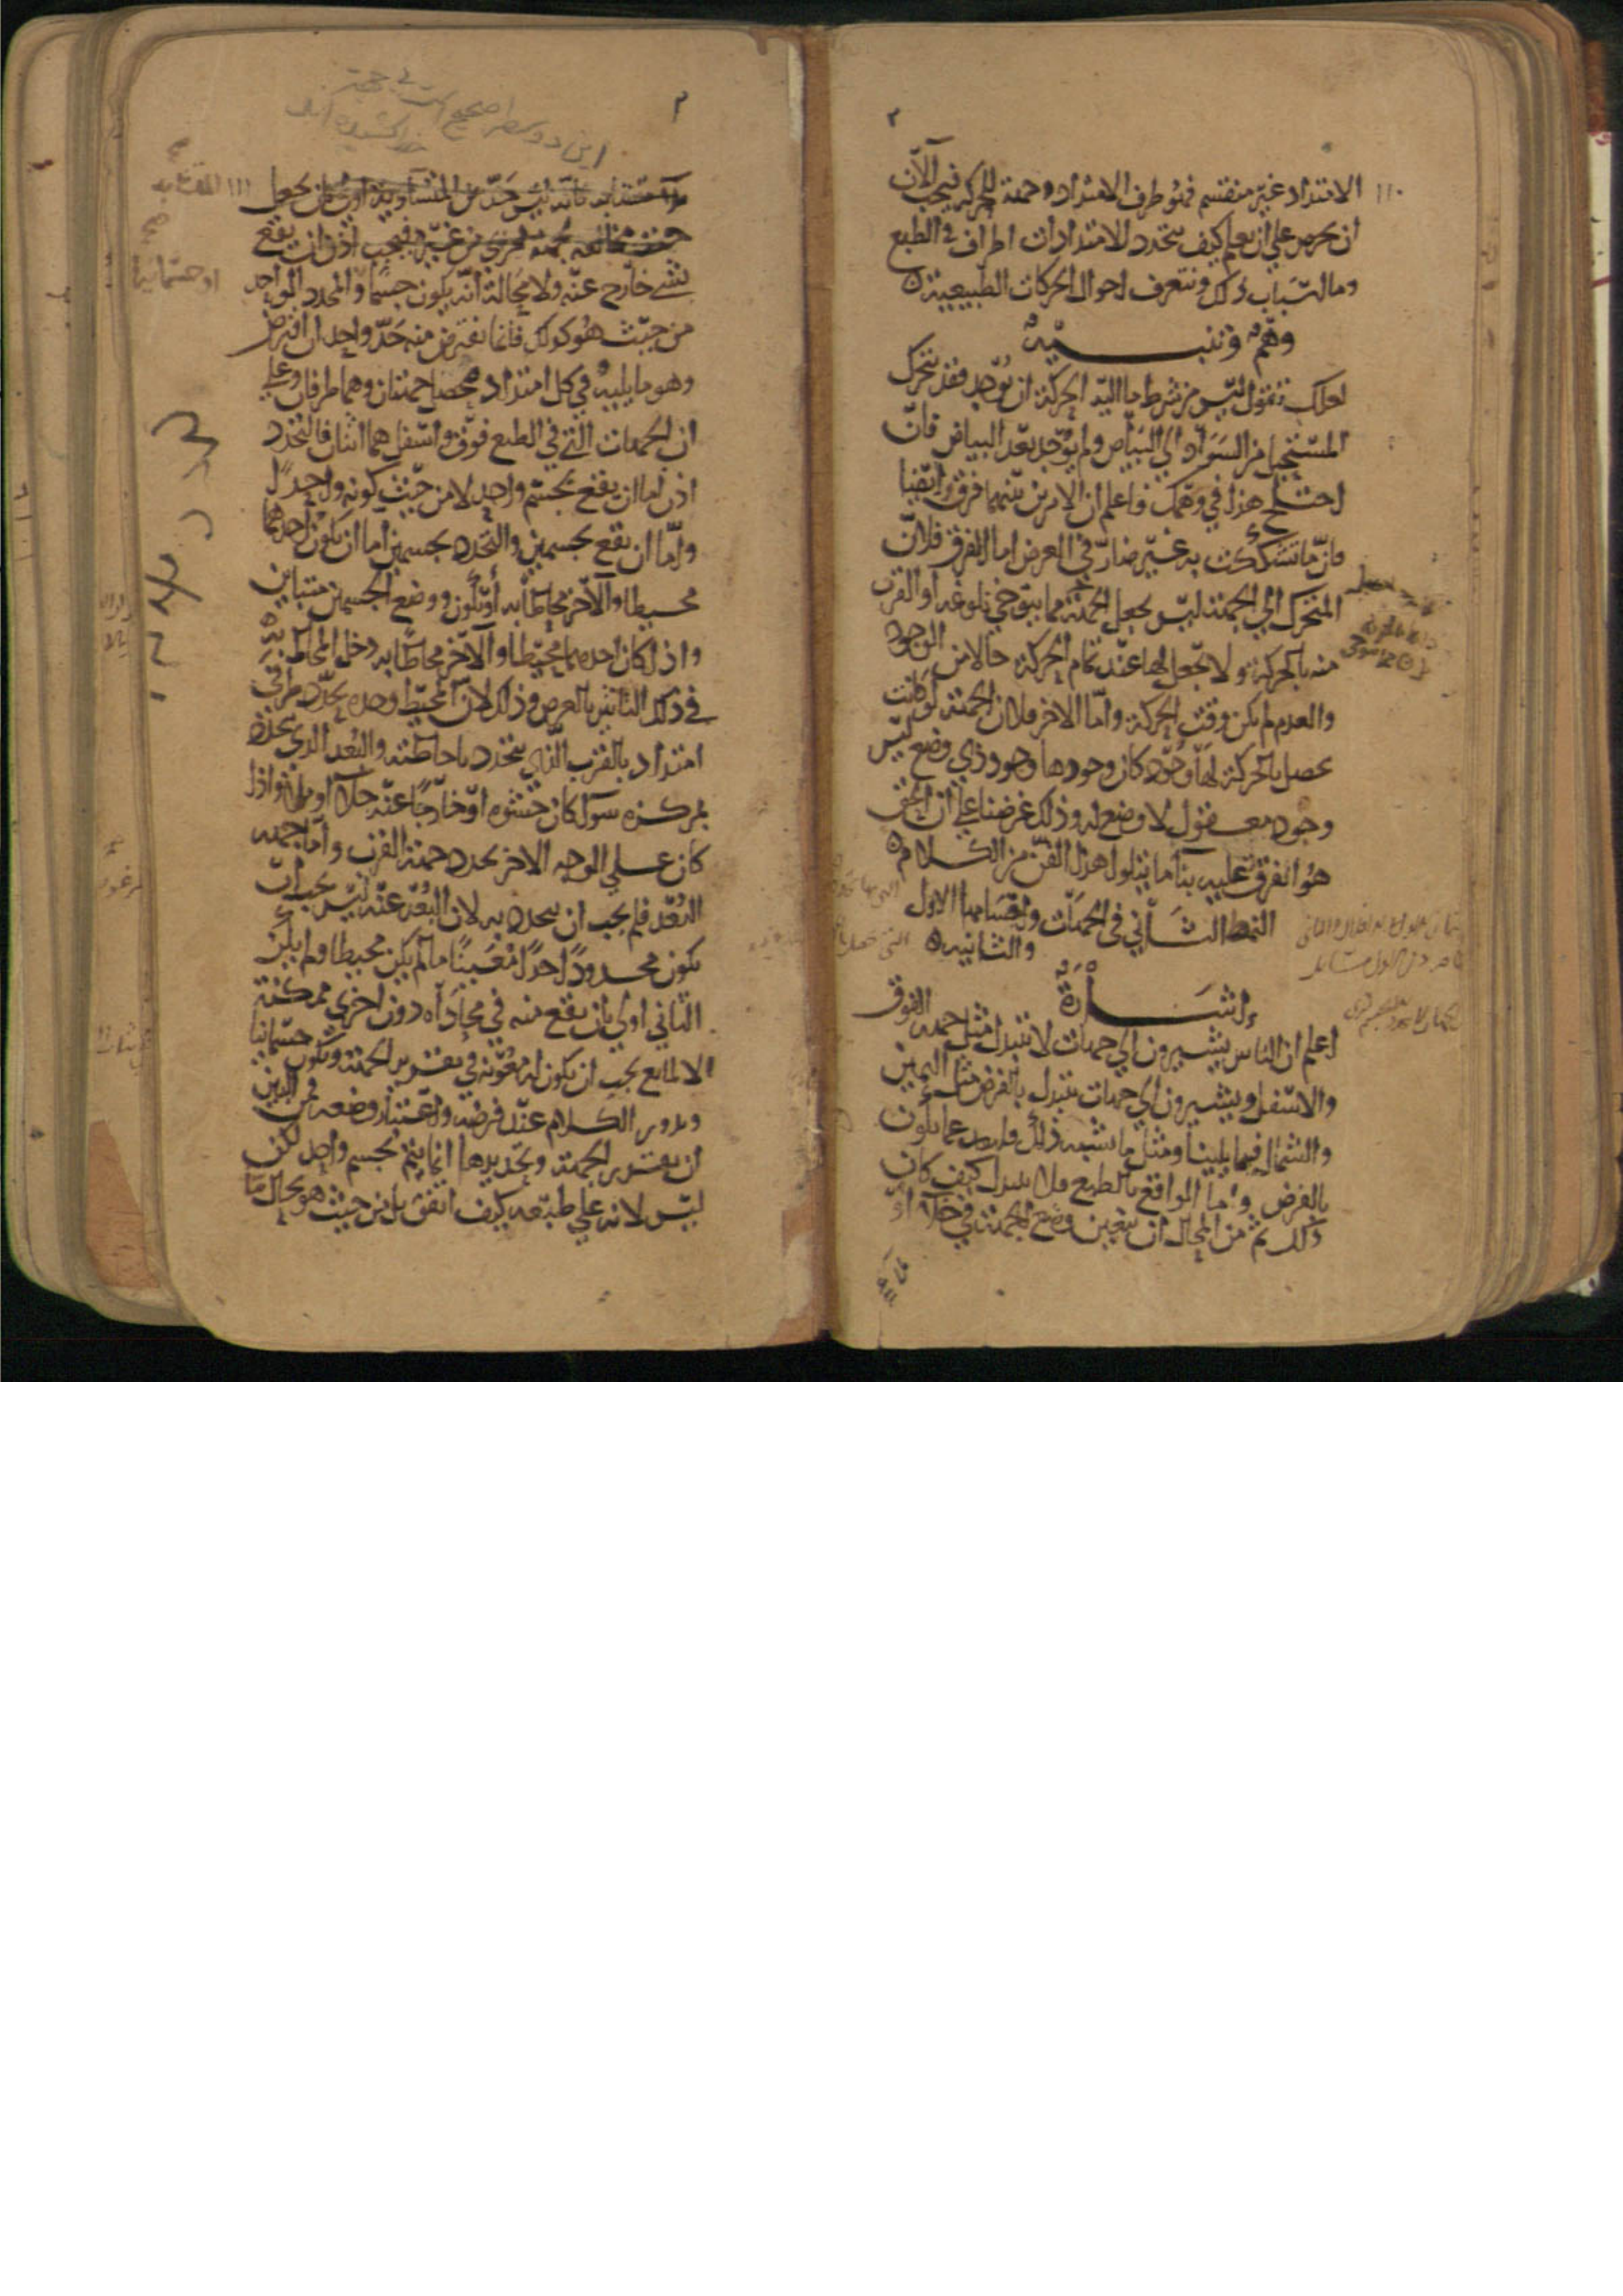 الامتداد غير منقسم فهو طرف الامتداد وجهة للحركة فيجب الآن
ان نحرص على ان نعلم كيف يتحدد للامتدادات اطراف في الطبع
وما اسباب ذلك ونتعرف احوال الحركات الطبيعية
وهم وتنبيه
لعلك تقول ليس من شرط ما اليه الحركة ان يوجد فقد يتحرك
المستحيل من السواد الى البياض ولم يوجد بعد البياض فان
اختلج هذا في وهمك فاعلم ان الامرين بينهما فرق وايضا
فان ما تشككت به غير ضار في الغرض اما الفرق فلان
المتحرك الى الجهة ليس يجعل الجهة مما يتوخى بلوغه او القرب
منه بالحركة ولا يجعل لها عند تمام الحركة حالا من الوجود
والعدم لم يكن وقت الحركة واما الاخر فلان الجهة لو كانت
يحصل بالحركة لها وجود كان وجودها وجود ذي وضع ليس
وجود معقول لا وضع له وذلك غرضنا على ان الحق
هو الفرق عليه بنا ما يتلوا هذا الفن من الكلام
النمط الثاني في الجهات واجسامها الاولى
والثانية
اشارة
اعلم ان الناس يشيرون الى جهات لا تتبدل مثل جهة الفوق
والاسفل ويشيرون الى جهات تتبدل بالفرض مثل اليمين
والشمال فيما يلينا ومثل ما يشبه ذلك فلنعد عما يكون
بالفرض واما الواقع بالطبع فلا يتبدل كيف كان
ذلك ثم من المحال ان يتعين وضع الجهة في خلاء او
ملاء
متشابه فانه ليس حد من المتشابه اولى بان يجعل
جهة مخالفة لجهة اخرى من غيره فيجب اذن ان يقع
بشيء خارج عنه ولا محالة انه يكون جسما والمحدد الواحد
من حيث هو كذلك فانما يفترض منه حد واحد ان افترض
وهو ما يليه وفي كل امتداد يحصل جهتان وهما طرفان وعلى
ان الجهات التي في الطبع فوق واسفل هما اثنان فالتحدد
اذن اما ان يقع بجسم واحد لا من حيث كونه واحدا
واما ان يقع بجسمين والتحدد بجسمين اما ان يكون احدهما
محيطا والآخر محاطا به او يكون وضع الجسمين متباين
واذا كان احدهما محيطا والآخر محاطا به دخل المحاط به
في ذلك التاثير بالعرض وذلك لان المحيط وحده يحدد طرفي
امتداد بالقرب الذي يتحدد باحاطته والبعد الذي يتحدد
بمركزه سواء كان حشوه او خارجا عنه خلاء او ملاء واذا
كان على الوجه الاخر تحدد جهة القرب واما جهة
البعد فلم يجب ان يتحدد به لان البعد عنه ليس يجب ان
يكون محدودا حدا معينا ما لم يكن محيطا ولم يكن
الثاني اولى بان يقع منه في محاذاة دون اخرى ممكنة
الا لمانع يجب ان يكون له معونة في تقرير الجهة ويكون جسمانيا
ويدور الكلام عند فرضه واعتبار وضعه فمن البين
ان تقرير الجهة وتحديدها انما يتم بجسم واحد لكن
ليس لانه على طبعه كيف اتفق بل من حيث هو بحال ما